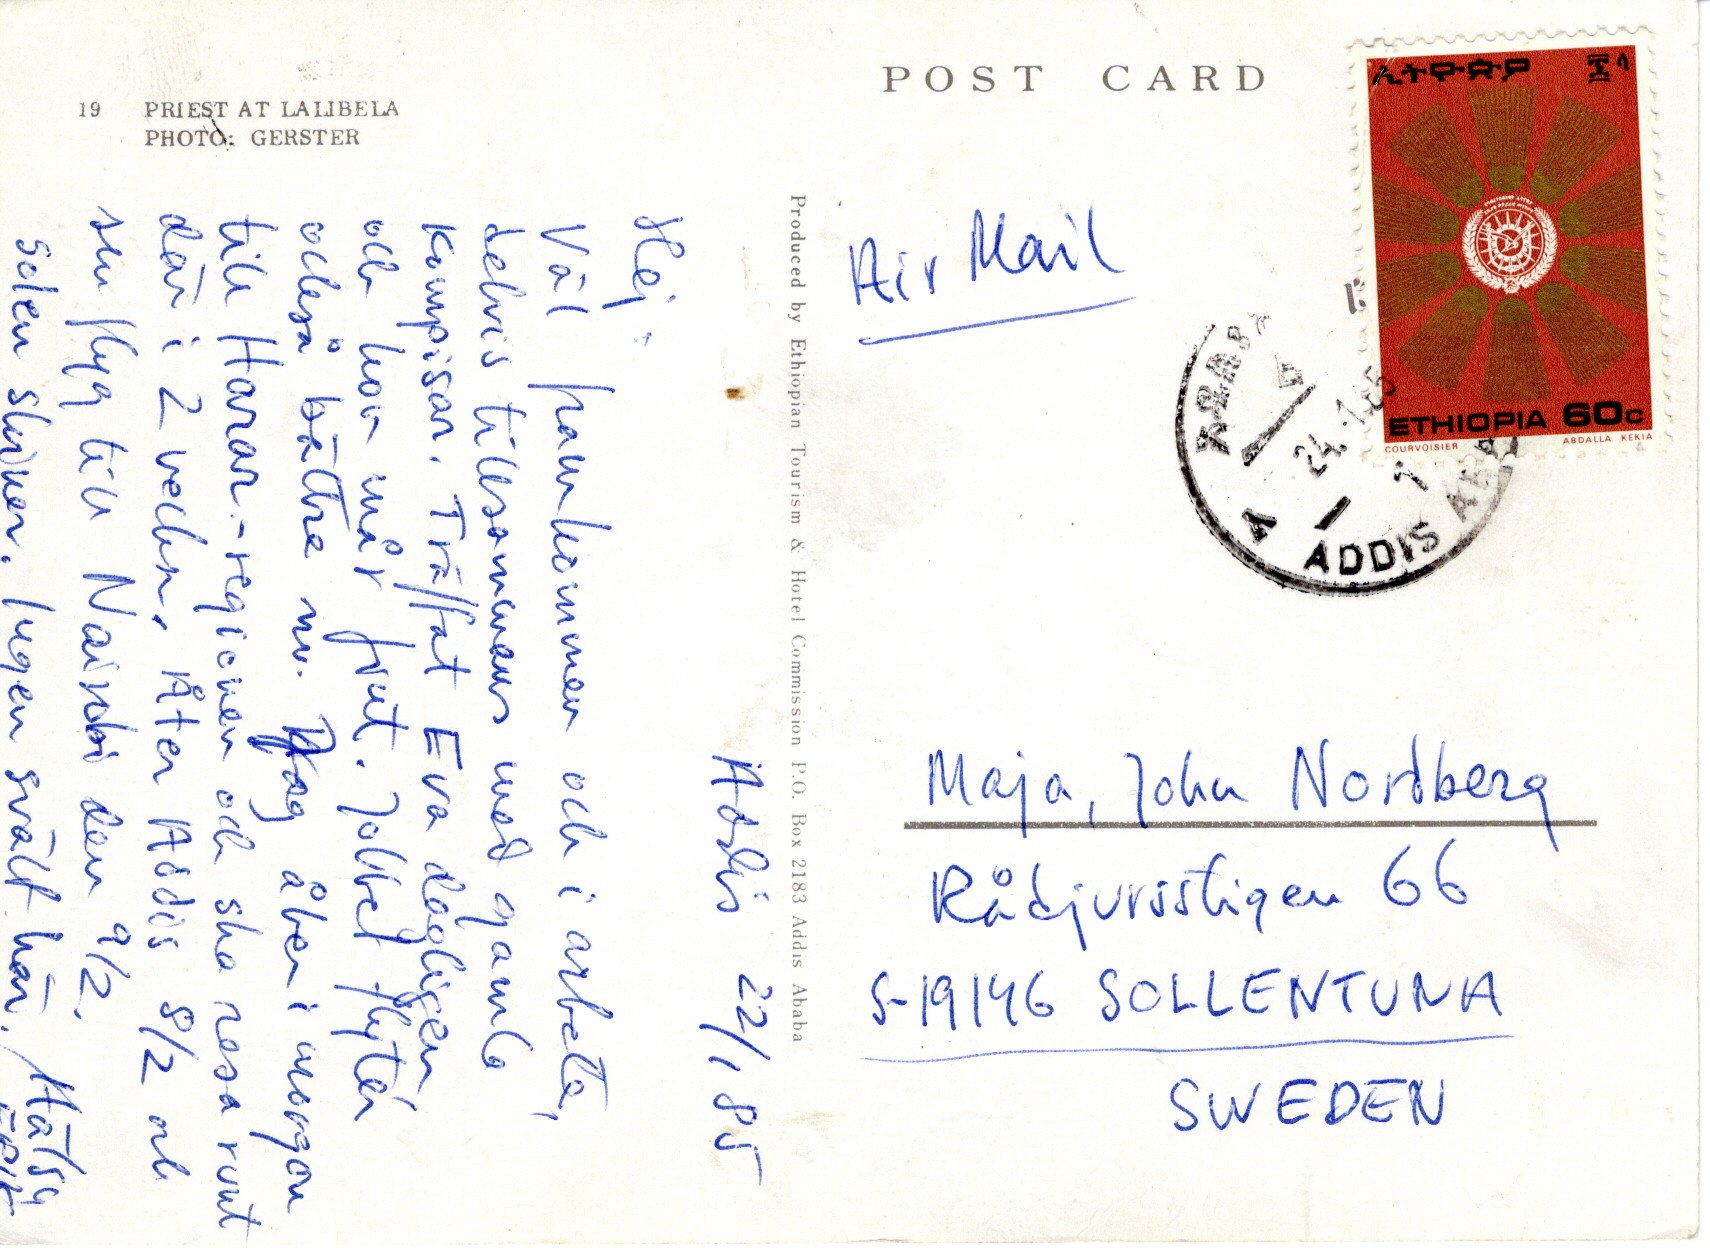 19 PRIEST AT LALIBELA
PHOTO: GERSTER
POST CARD
ኢትዮጵያ
ETHIOPIA 60c
COURVOISIER ABDALLA KEKIA
24.1.85
ADDIS ABA
Air Mail
Produced by Ethiopian Tourism & Hotel Commission P.O. Box 2183 Addis Ababa
Addis 22/1 85
Hej.
Väl framkommen och i arbete,
delvis tillsammans med gamla
kompisar. Träffat Eva dagligen
och hon mår fint. Jobbet flyter
också bättre nu. Jag åker i morgon
till Harar-regionen och ska resa runt
där i 2 veckor. Åter Addis 8/2 och
sen flyg till Nairobi den 9/2.
Solen skiner. Ingen svält här. / Hälsn
Maja, John Nordberg
Rådjursstigen 66
S-19146 SOLLENTUNA
SWEDEN